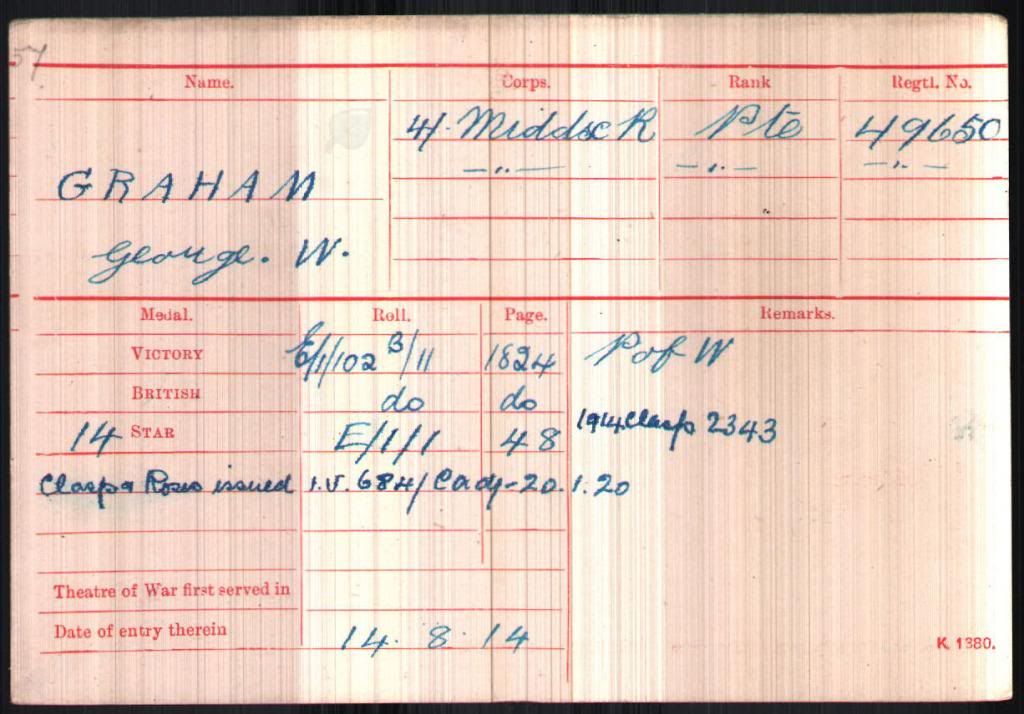 57
Name. Corps. Rank Regtl. No.
4/. Middsx R Pte 49650
—„— —„— —„—
GRAHAM
George. W.
Medal. Roll. Page. Remarks.
VICTORY E/1/102 B/11 1824 P of W
BRITISH do do
14 STAR E/1/1 48 1914 Clasp 2343
Clasp & Roses issued I.V. 684/ Cady-20.1.20
Theatre of War first served in
Date of entry therein 14. 8. 14
K. 1380.